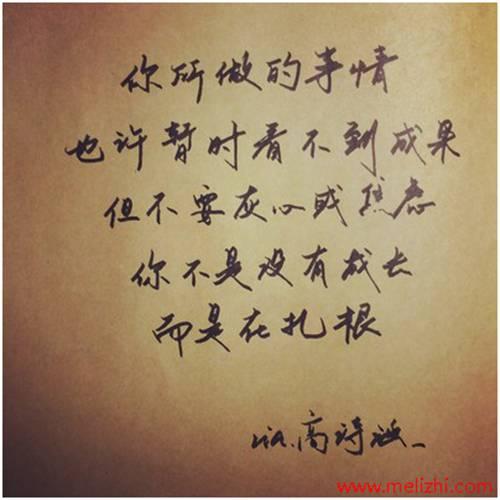 你所做的事情
也许暂时看不到成果
但不要灰心或焦虑
你不是没有成长
而是在扎根
via.高诗涵_
www.melizhi.com